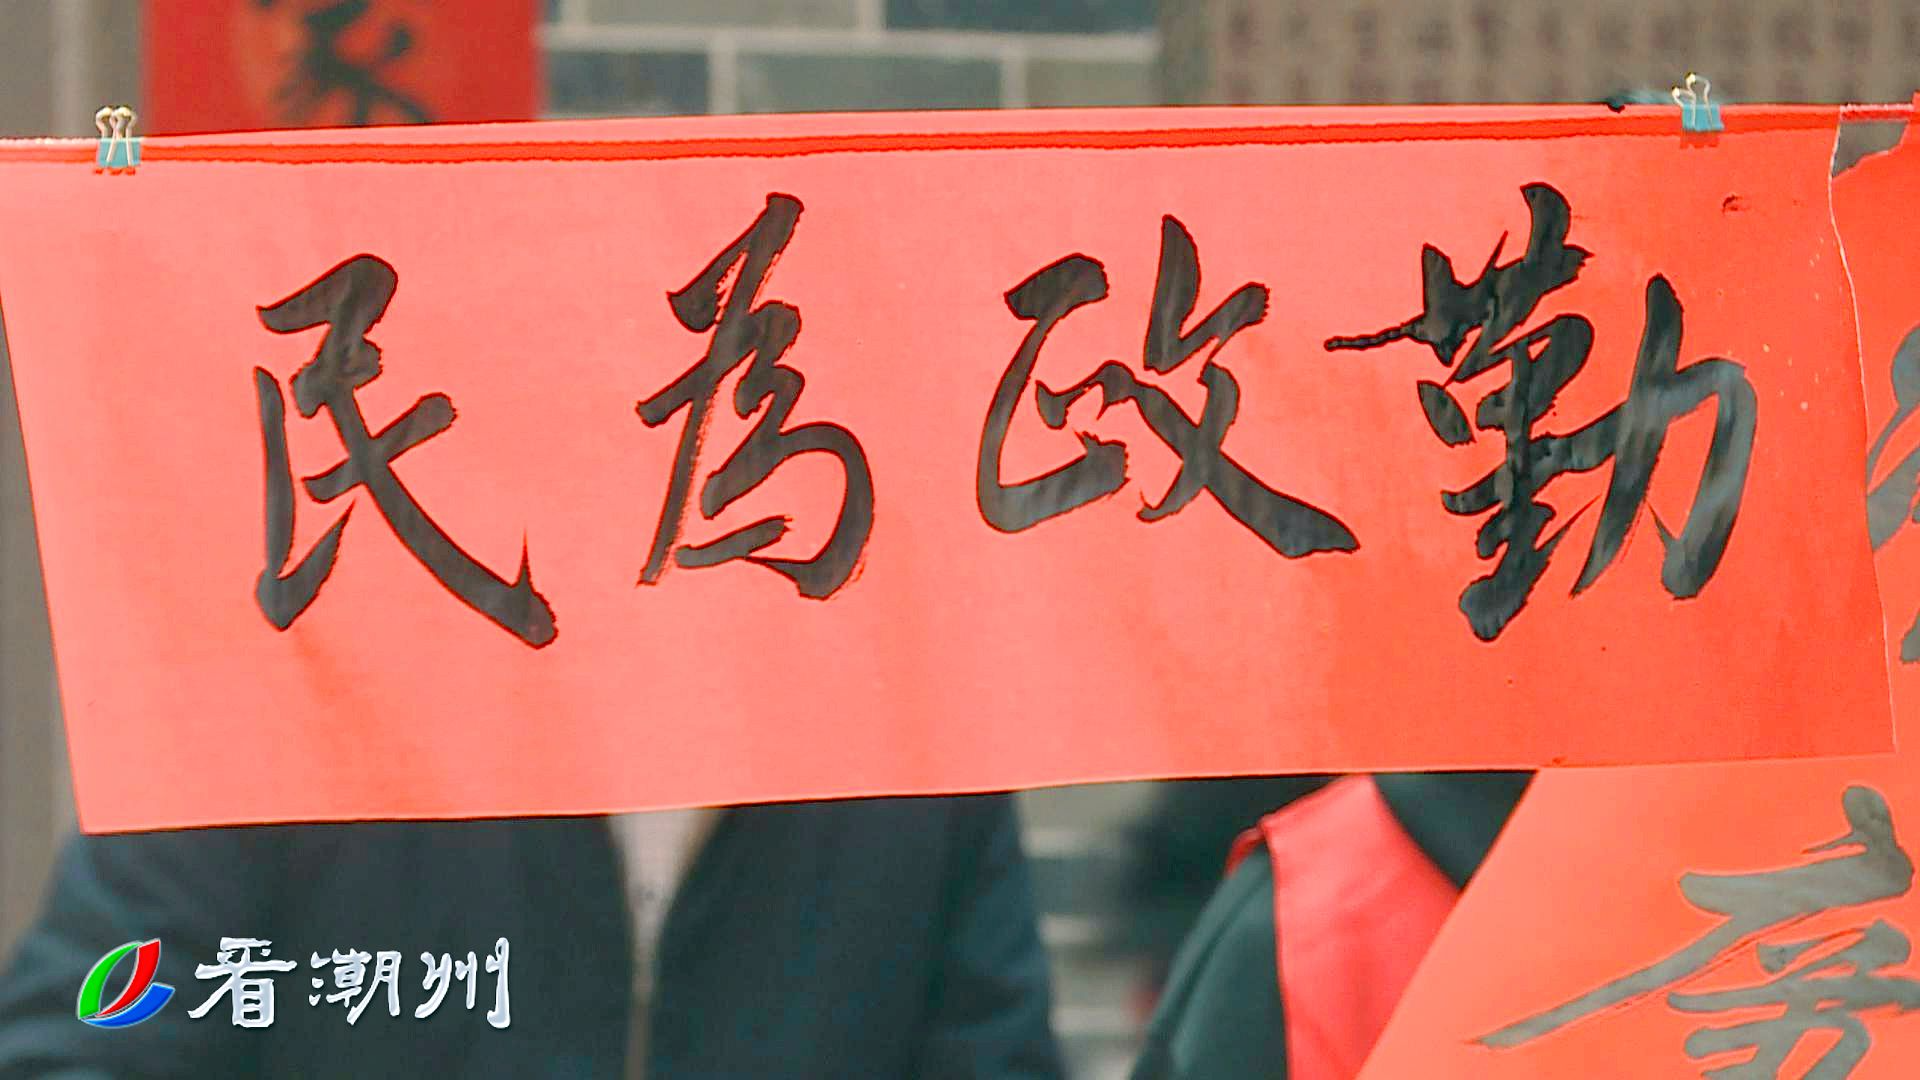 勤政為民
看潮州